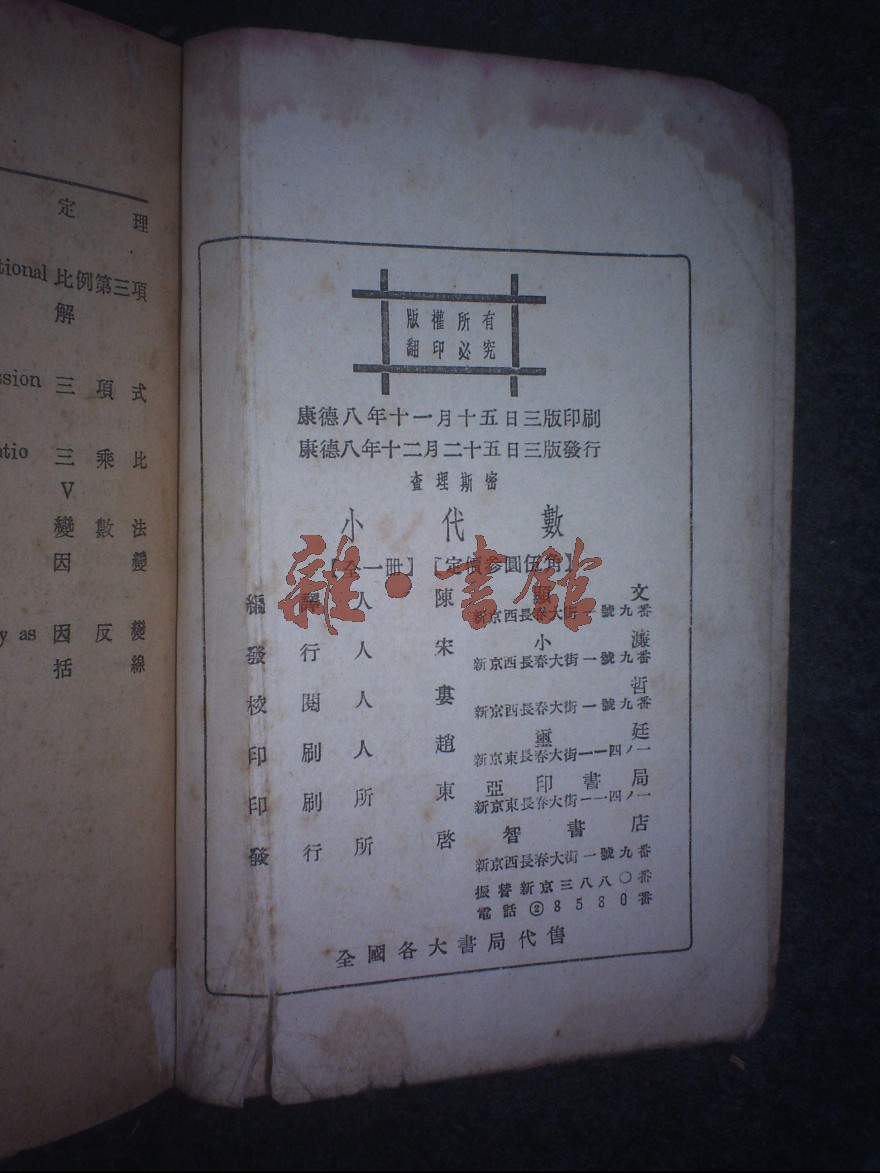 定理
tional 比例第三項
解
ssion 三項式
atio 三乘比
V
變數法
因變
y as 因反變
括線
版權所有
翻印必究
康德八年十一月十五日三版印刷
康德八年十二月二十五日三版發行
查理斯密
小代數
[全一册] [定價參圓伍角]
編譯人 陳顯文
新京西長春大街一號九番
發行人 宋小濂
新京西長春大街一號九番
校閱人 婁哲
新京西長春大街一號九番
印刷人 趙璽廷
新京東長春大街一一四ノ一
印刷所 東亞印書局
新京東長春大街一一四ノ一
發行所 啓智書店
新京西長春大街一號九番
振替新京三八八〇番
電話②8580番
全國各大書局代售
雜·書館